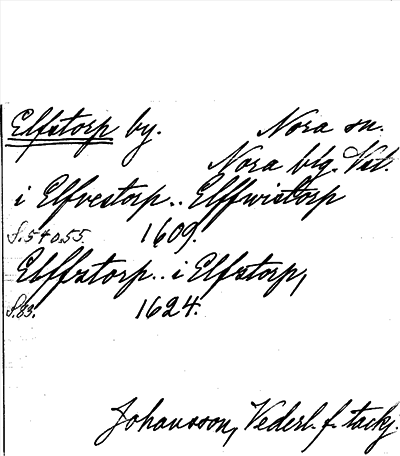 Elfstorp by. Nora sn.
Nora blg. Vst.
i Elfvestorp.. Elffwistorp
S. 54 o. 55. 1609.
Elffztorp.. i Elfstorp,
S. 83. 1624.
Johansson, Vederl. f. tackj.